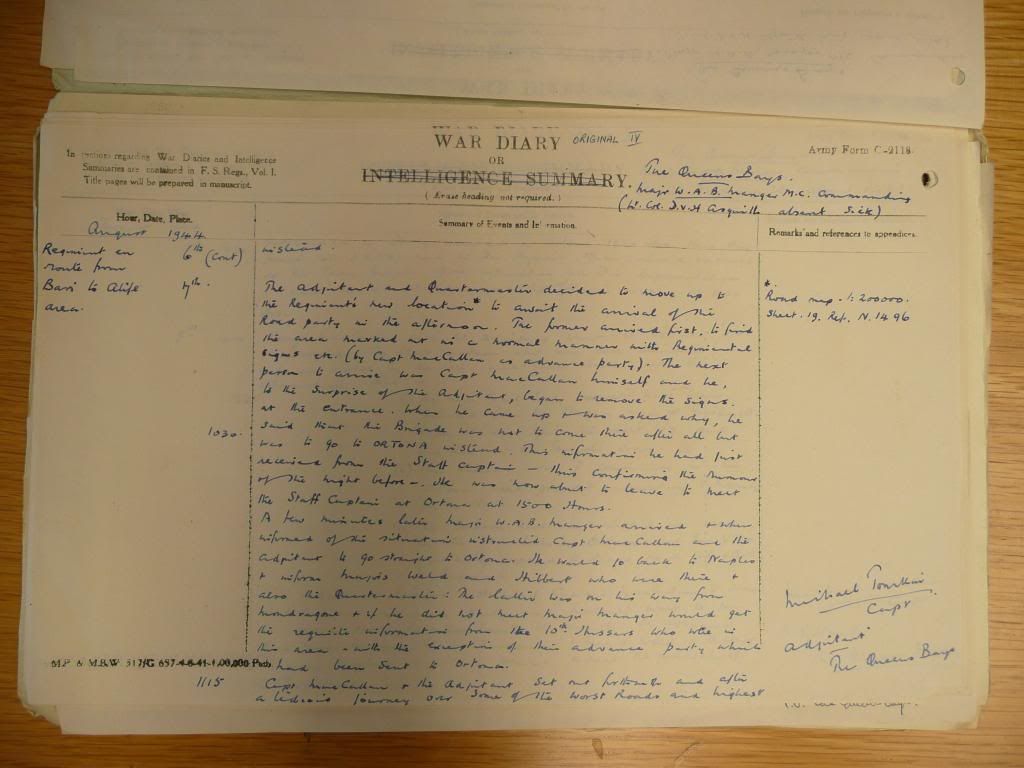 WAR DIARY ORIGINAL IV
OR
INTELLIGENCE SUMMARY.
(Erase heading not required.)
Army Form C-2118.
In regarding War Diaries and Intelligence
Summaries are contained in F. S. Regs., Vol. I.
Title pages will be prepared in manuscript.
The Queens Bays.
Major W.A.B. Manger M.C. Commanding
(Lt. Col. D.V.H Asquith absent Sick)
Hour, Date, Place.
Summary of Events and Information.
Remarks and references to appendices.
August 1944
Regiment en 6th (cont)
route from
Bari to Alife 7th.
area.
instead.
The Adjutant and Quartermaster decided to move up to
the Regiment's new location* to await the arrival of the
Road party in the afternoon. The former arrived first, to find
the area marked out in a normal manner with Regimental
signs etc. (by Capt MacCallan as advance party). The next
person to arrive was Capt MacCallan himself and he,
to the surprise of the Adjutant, began to remove the signs.
at the entrance. When he came up & was asked why, he
1030. said that the Brigade was not to come there after all but
was to go to ORTONA instead. This information he had just
received from the Staff Captain – thus confirming the rumour
of the night before –. He was now about to leave to meet
the Staff Captain at Ortona at 1500 Hours.
A few minutes later Major W.A.B. Manger arrived & when
informed of the situation instructed Capt MacCallan and the
Adjutant to go straight to Ortona. He would go back to Naples
& inform Majors Weld and Hilbert who were there &
also the Quartermaster: The latter was on his way from
Mondragone & if he did not meet Major Manger would get
the requisite information from the 10th Hussars who were in
this area – with the exception of their advance party which
had been sent to Ortona.
1115 Capt MacCallan & the Adjutant set out forthwith and after
a tedious journey over some of the worst Roads and highest
* Road map. 1:200000.
Sheet. 19. Ref. N.1496
Michael Tomkin
Capt
Adjutant
The Queens Bays
M.P. & M.B.W. 517/G 657 4-6-41-1,00,000 Pads.